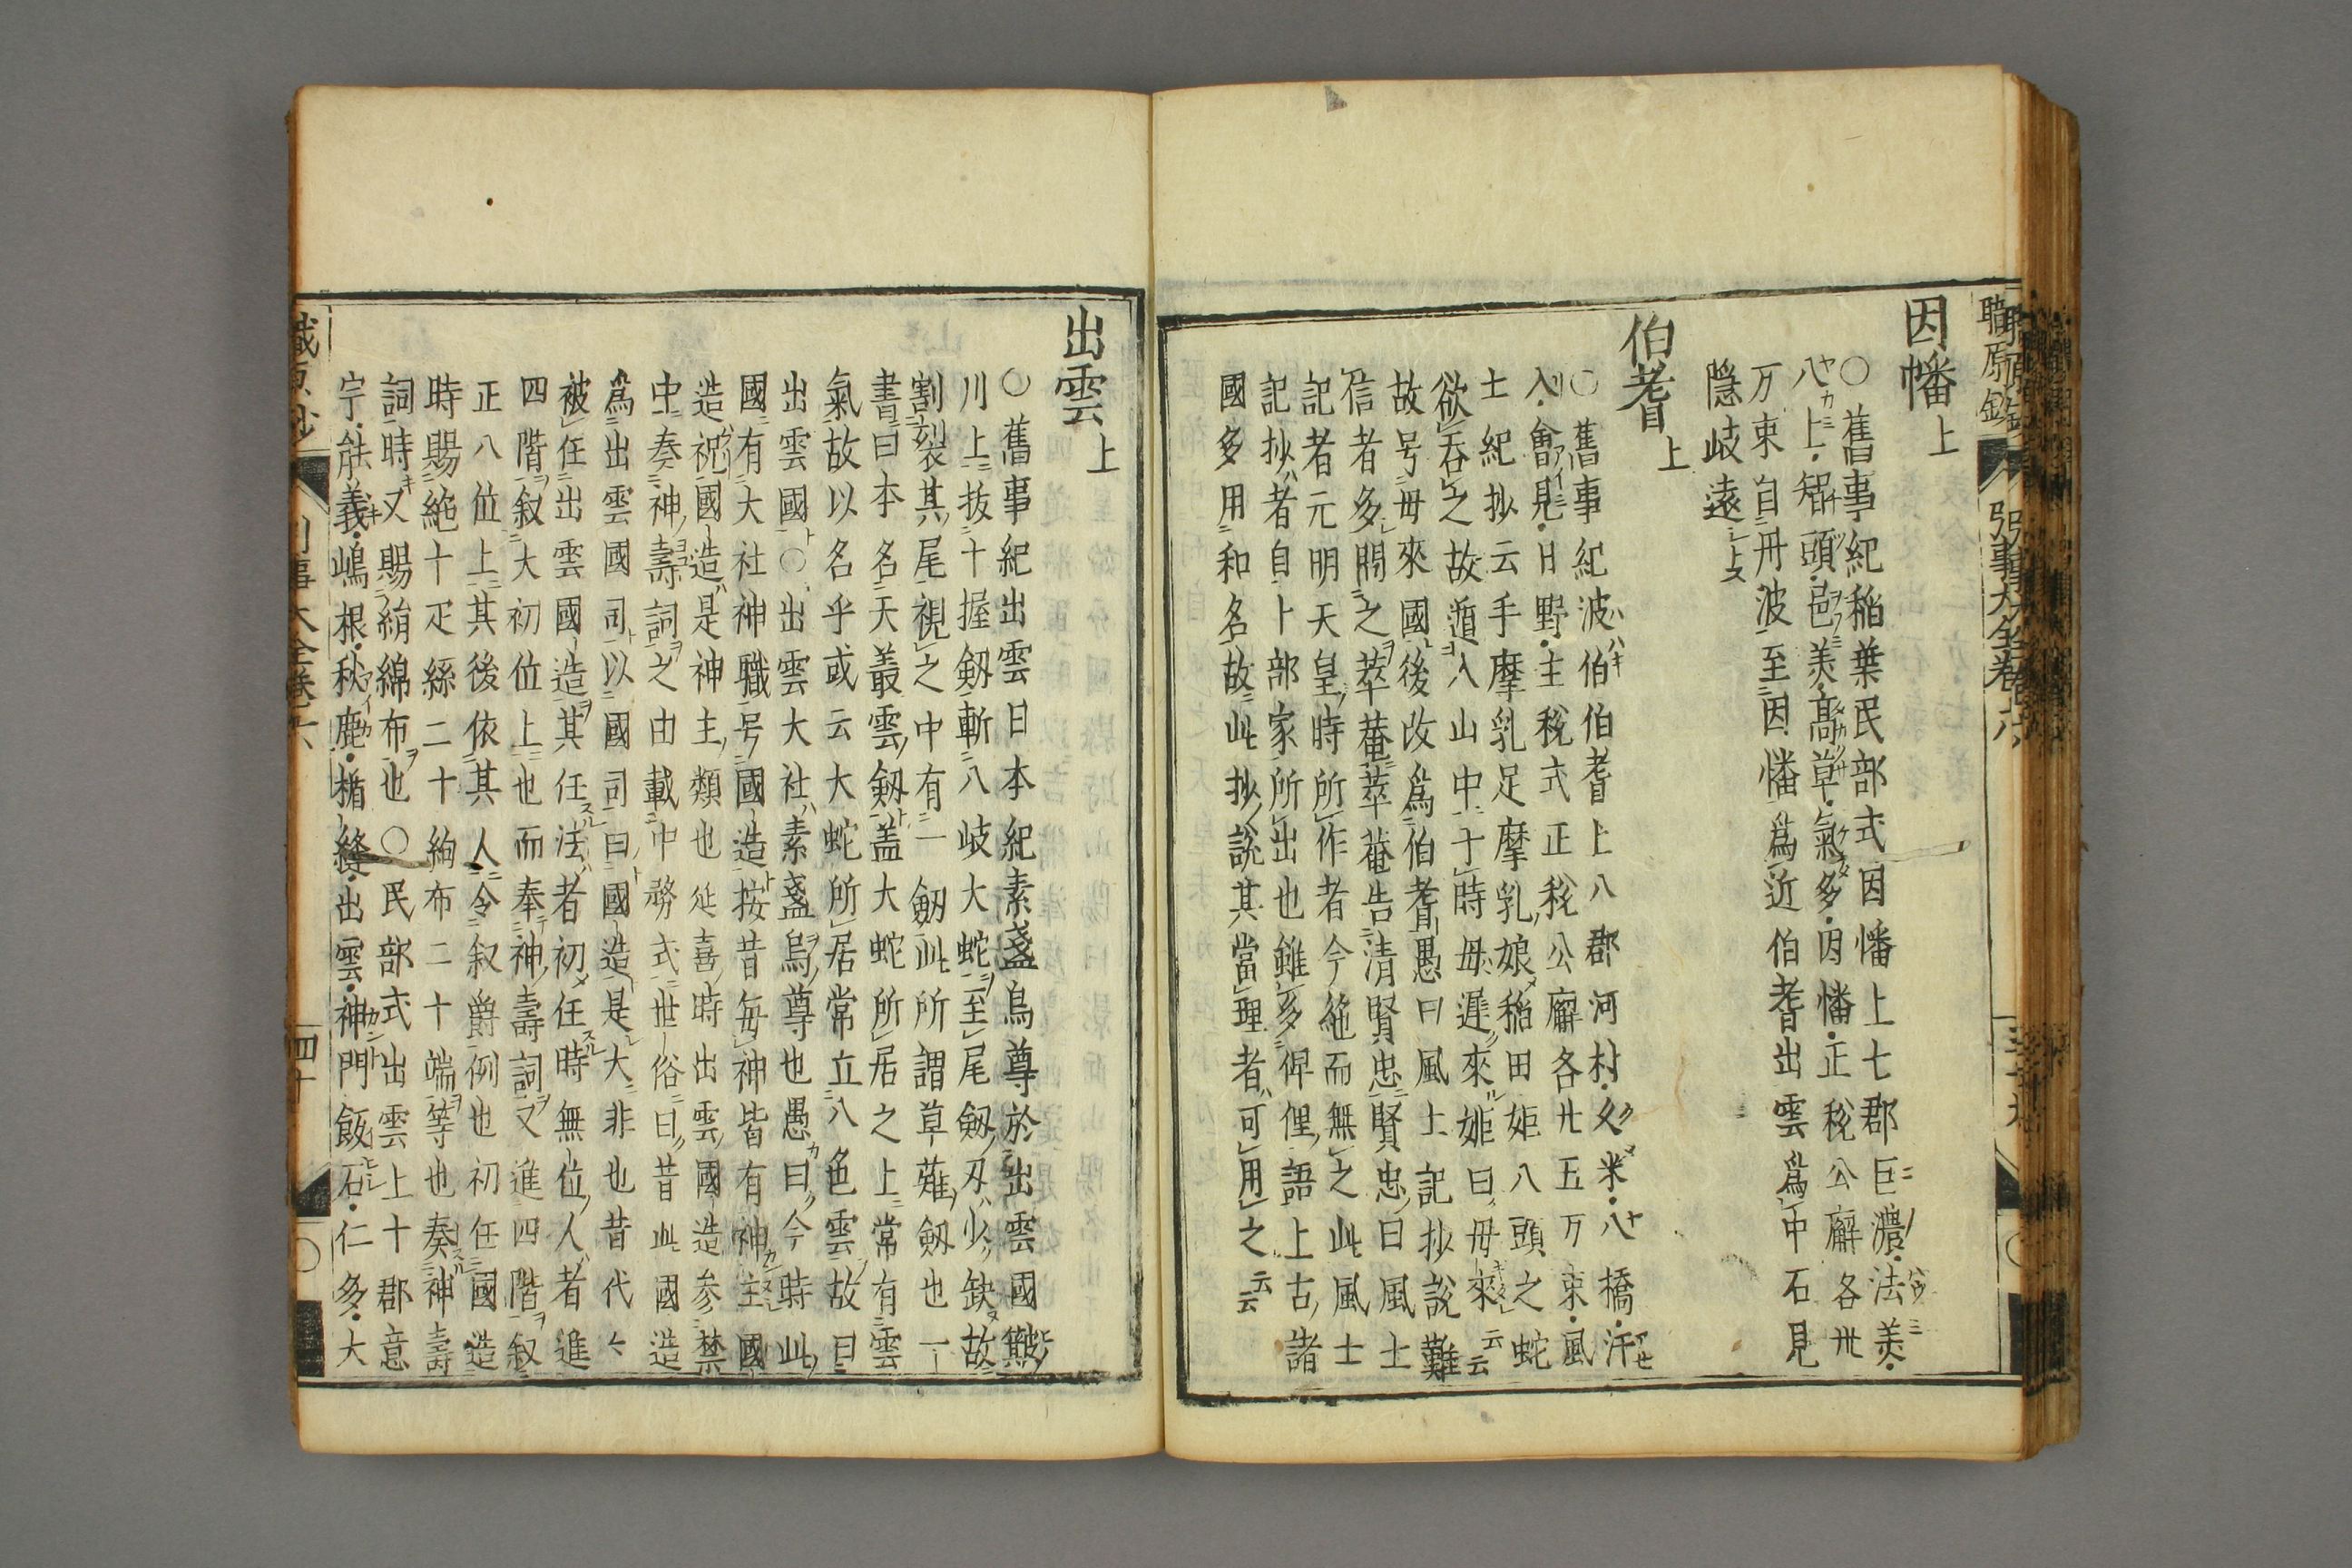 職原鈔
引事大全卷六
因幡上
〇舊事紀稲葉民部式因幡上七郡巨濃・法美・
八上・智頭・邑美・高草・氣多・因幡・正稅公廨各卅
万束自丹波至因幡為近伯耆出雲為中石見
隠岐遠上ス
伯耆上
〇舊事紀波伯伯耆上八郡河村・久米・八橋・汗
入・會見・日野・主稅式正稅公廨各廿五万束・風
土紀抄云手摩乳足摩乳娘稲田姫八頭之蛇
欲吞之故遁入山中于時毋遲來姫曰毋來云云
故号毋來國後改為伯耆愚曰風土記抄說難
信者多問之萃菴萃菴告清賢忠賢忠曰風土
記者元明天皇時所作者今絶而無之此風士
記抄者自卜部家所出也雖多俚俚語上古諸
國多用和名故此抄說其當理者可用之云云
出雲上
〇舊事紀出雲日本紀素盞烏尊於出雲國簸
川上抜十握剱斬八岐大蛇至尾剱刃少缺故
割裂其尾視之中有一剱此所謂草薙剱也一
書曰本名天叢雲剱盖大蛇所居之上常有雲
氣故以名乎或云大蛇所居常立八色雲故曰
出雲國〇出雲大社素盞烏尊也愚曰今時此
國有大社神職号國造按昔毎神皆有神主國
造祝國造是神主類也延喜時出雲國造参禁
中奏神壽詞之由載中務式世俗曰昔此國造
為出雲國司以國司曰國造是大非也昔代々
被任出雲國造其任法者初任時無位人者進
四階叙大初位上也而奉神壽詞又進四階叙
正八位上其後依其人令叙爵例也初任國造
時賜絁十疋絲二十絇布二十端等也奏神壽
詞時又賜絹綿布也〇民部式出雲上十郡意
宇・能義・嶋根・秋鹿・楯縫・出雲・神門飯石・仁多・大
職原抄
引事大全卷六
四十